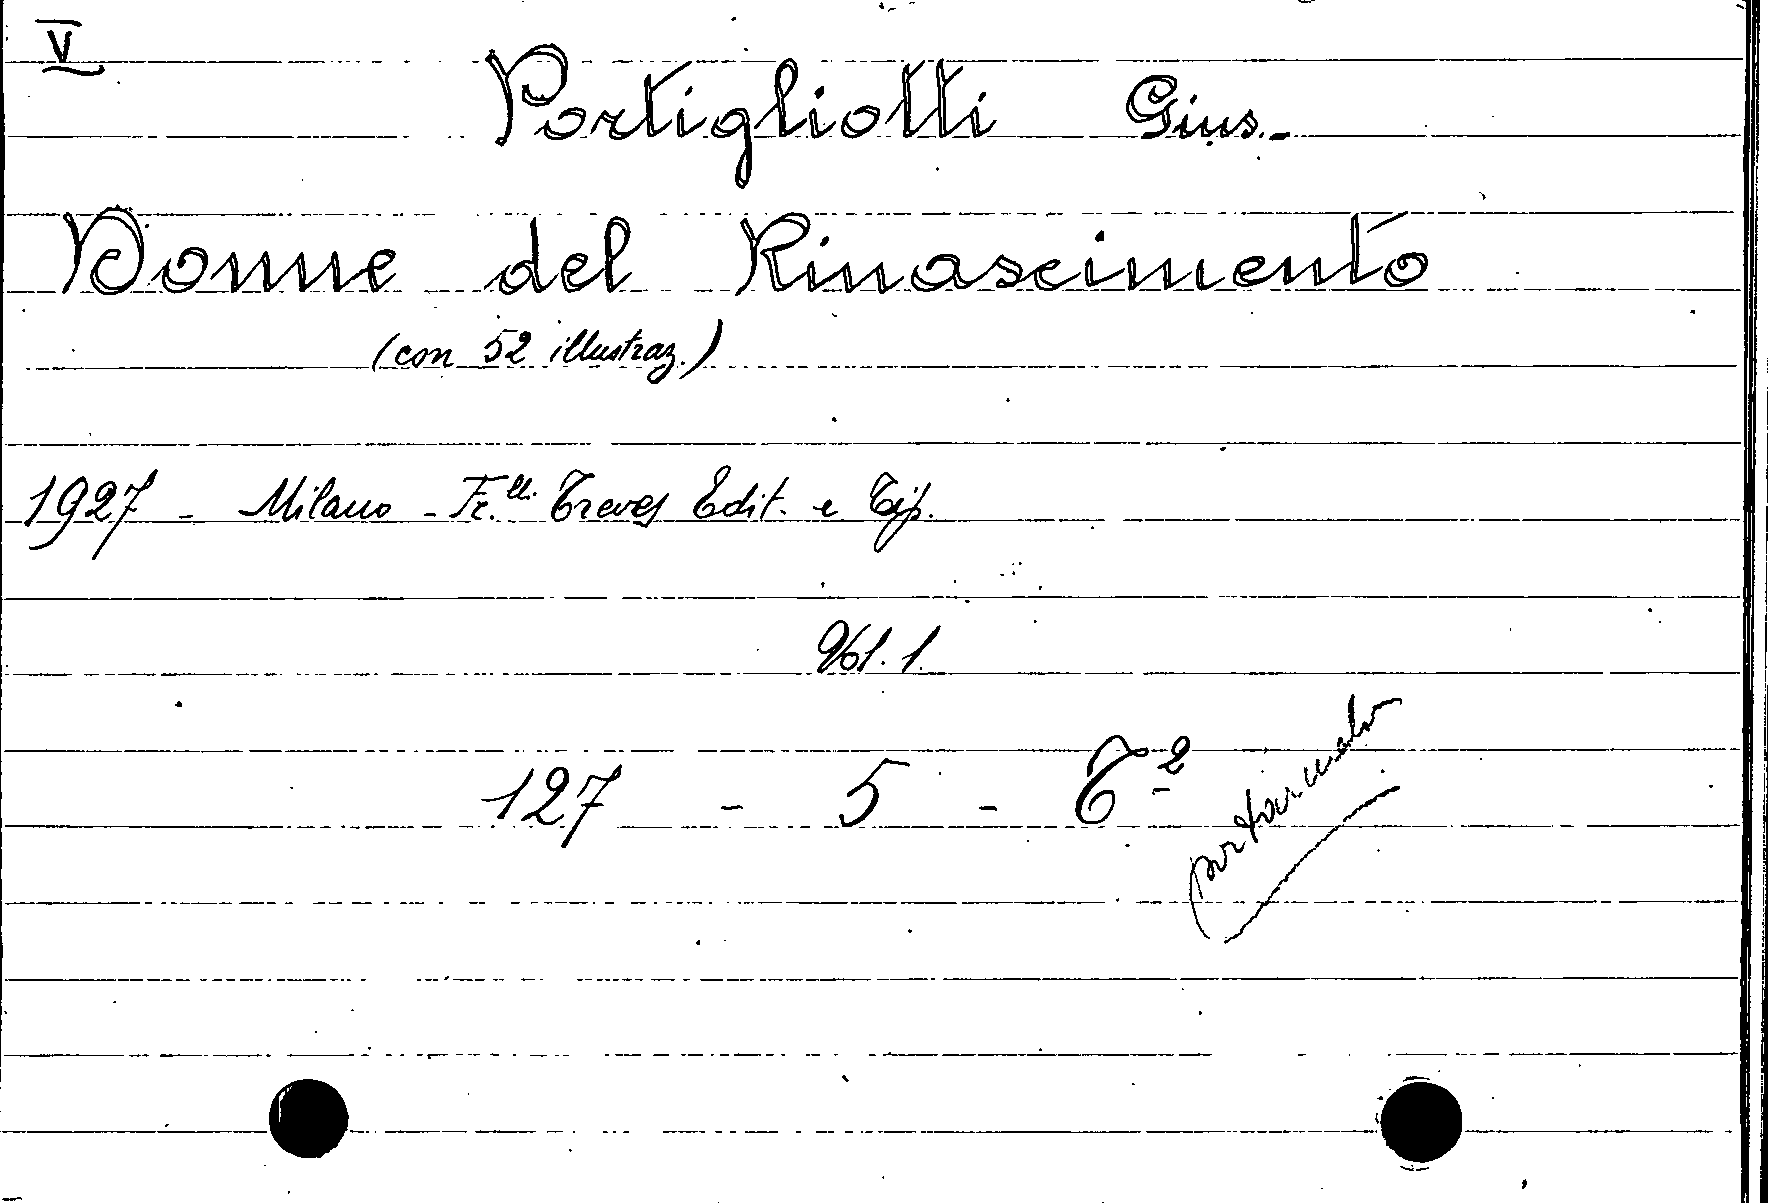 V
Portigliotti Gius.-
Donne del Rinascimento
(con 52 illustraz.)
1927 - Milano - Fr.lli Treves Edit. e Tip.
Vol. 1.
127 - 5 - T 2